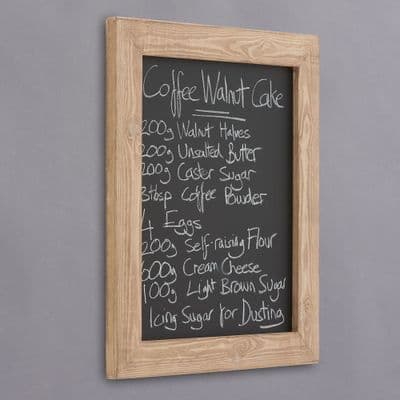 Coffee Walnut Cake
200g Walnut Halves
200g Unsalted Butter
200g Caster Sugar
3tbsp Coffee Powder
4 Eggs
200g Self-raising Flour
600g Cream Cheese
100g Light Brown Sugar
Icing Sugar for Dusting